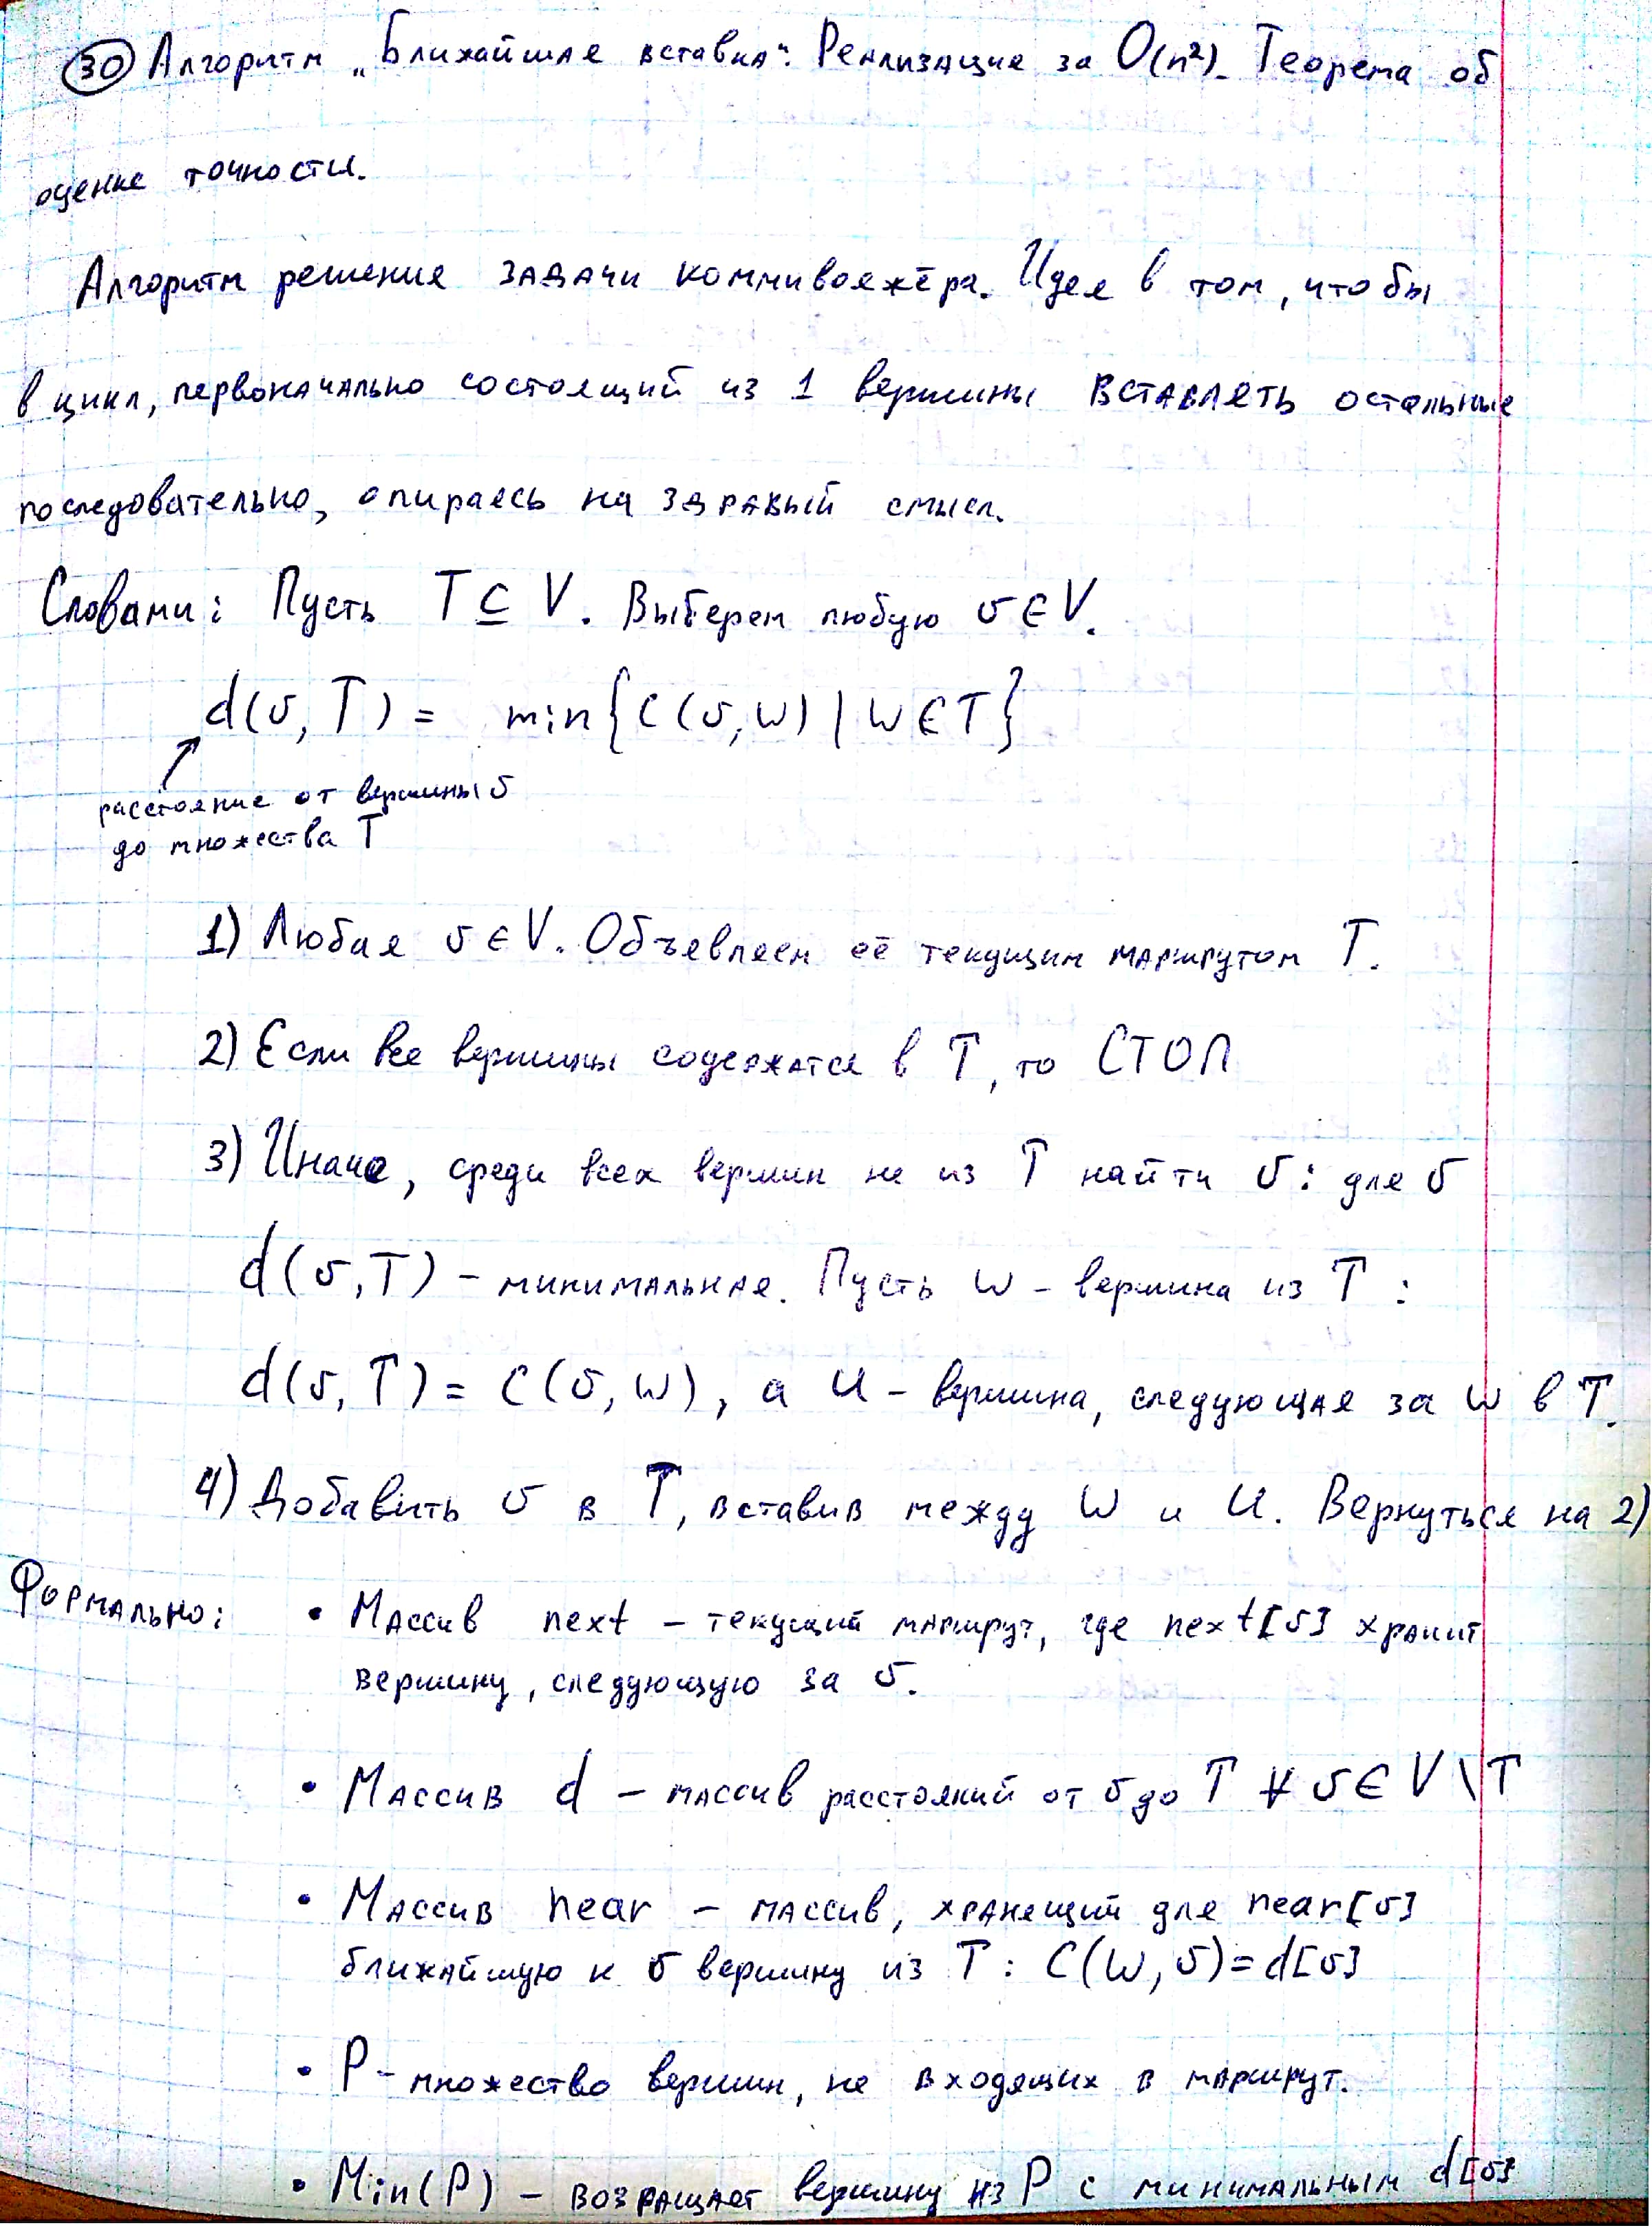 30 Алгоритм „Ближайшая вставка". Реализация за O(n²). Теорема об
оценке точности.
Алгоритм решения задачи коммивояжёра. Идея в том, чтобы
в цикл, первоначально состоящий из 1 вершины вставлять остальные
последовательно, опираясь на здравый смысл.
Словами: Пусть T ⊆ V. Выберем любую v ∈ V.
d(v, T) = min{C(v, w) | w ∈ T}
расстояние от вершины v
до множества T
1) Любая v ∈ V. Объявляем её текущим маршрутом T.
2) Если все вершины содержатся в T, то СТОП
3) Иначе, среди всех вершин не из T найти v: для v
d(v, T) – минимальная. Пусть w – вершина из T :
d(v, T) = C(v, w), а u – вершина, следующая за w в T.
4) Добавить v в T, вставив между w и u. Вернуться на 2)
Формально: • Массив next – текущий маршрут, где next[v] хранит
вершину, следующую за v.
• Массив d – массив расстояний от v до T ∀ v ∈ V \ T
• Массив near – массив, хранящий для near[v]
ближайшую к v вершину из T : C(w, v) = d[v]
• P – множество вершин, не входящих в маршрут.
• Min(P) – возвращает вершину из P с минимальным d[v]